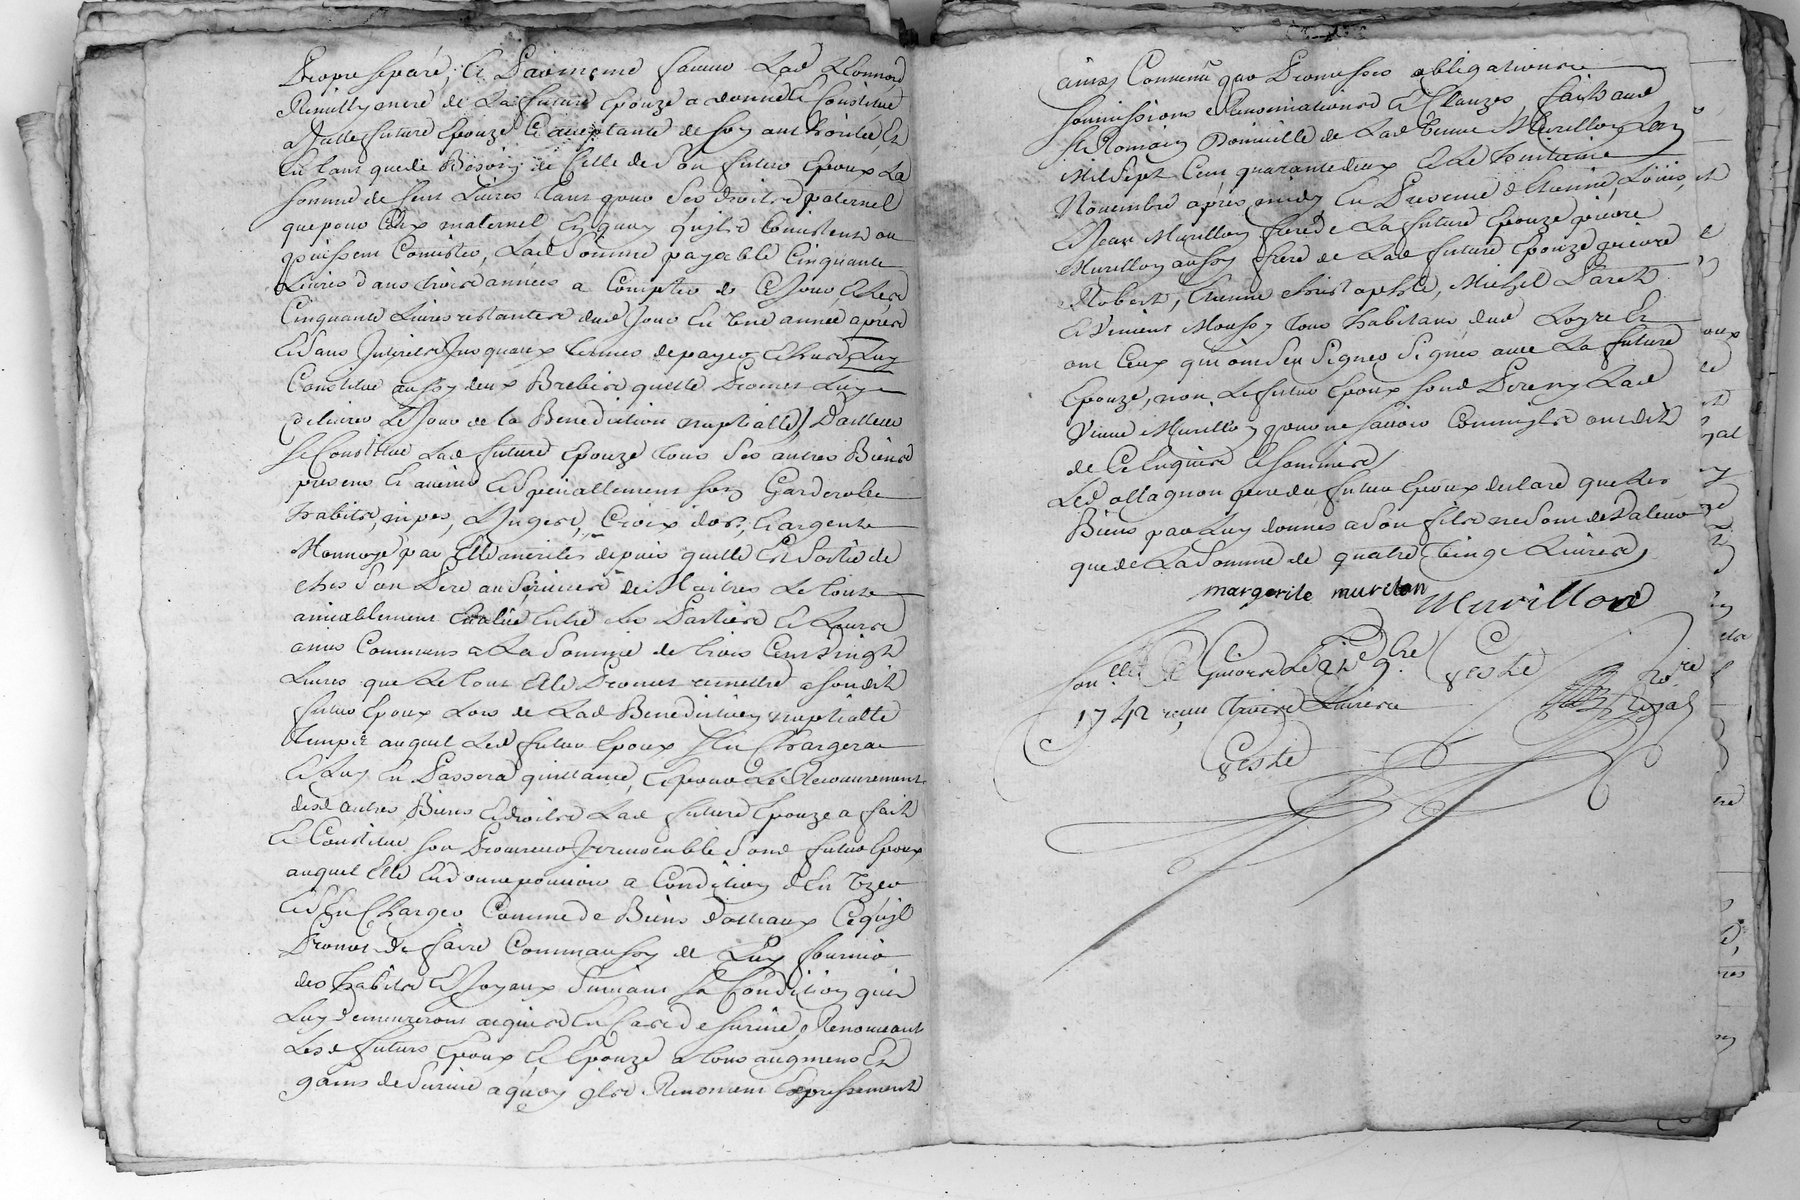 propre separé, Et Paumeme faveur Lad Leonnord
Remilly mere de La future Epouze a donné Et Constitué
a Jcelle future Epouze Ce acceptante de Soy authorisée Et
En tant que de Besoin de Celle de Son futur Epoux La
somme de Cent Livres tant pour Ses droits paternel
que pour Ceux maternel En quoy qu'jls Consistent ou
puissent Consister, Lad Somme payable Cinquante
Livres dans trois années a Compter de Ce Jour, Et Les
Cinquante Livres restantes dud Jour En Une année apres
Et Sans Jnterets Jusquaux termes de payer Et Luy
Constitue aussy deux Brebis quelle Promet Luy
delivrer Le Jour de la Benediction nuptialle / Dailleur
Se Constitue Lad future Epouze tous Ses autres Biens
presens Et avenir Et Specialement Son Garderobe
habits, nipes, Linges, Croix dor, Et argent
Monnoyé par Elle merités depuis quelle Est Sortie de
ches Son Pere au Services de Maitres Le tout
amiablement Evalué Entre Les Parties Et Leurs
amis Communs a La Somme de trois Cent Vingt
Livres que Le tout Elle Promet remettre a Sondit
futur Epoux Lors de Lad Benediction nuptialle
temps auquel Led futur Epoux S'En Chargera
Et Luy En Passera quittance, Et pour Le Recouvrement
desd autres Biens Et droits Lad future Epouze a fait
Et Constitué Son Procureur Jrrevocable Sond futur Epoux
auquel Elle En donne pouvoir a Condition d'En Uzer
Et d'En Charger Comme de Biens dotteaux Ce qu'jl
Promet de faire Comme aussy de Luy fournir
des habits Et Joyaux Suivant Sa Condition qui
Luy demeureront acquis En Cas de Survie, Renonceant
Lesd futurs Epoux Et Epouze a tous augmens Et
gains de Survie a quoy jls Renoncent Expressement
ainsy Convenu par Promesses obligations
Soumissions Renonciations Et Clauzes, fait aud
St Romain Domicille de Lad Veuve Murillon Lan
Mil Sept Cent quarante deux Et Le huitieme
Novembre apres midy En Presence d'Etienne, Louis,
Et Jean Murillon freres de La future Epouze pierre
Murillon aussy frere de Lad future Epouze pierre
Robert, Etienne Christophle, Michel Paret
Et Vincent Moussy tous habitans dud Loyre Et
ont Ceux qui ont Sçu Signer Signés avec La future
Epouze, non Le futur Epoux Sond Pere ny Lad
Veuve Murillon pour ne Sçavoir Comm'jls ont dit
de Ce Enquis Et Sommés /
Led allagnon pere du futur Epoux declare que Les
Biens par Luy donnés a Son fils ne Sont de Valeur
que de La Somme de quatre Vingt Livres,
margerite murelon Murillon
Con.llé a Givors Le 21e 9bre
1742 reçu Treize Livres
Geste
Geste
Nore Royal